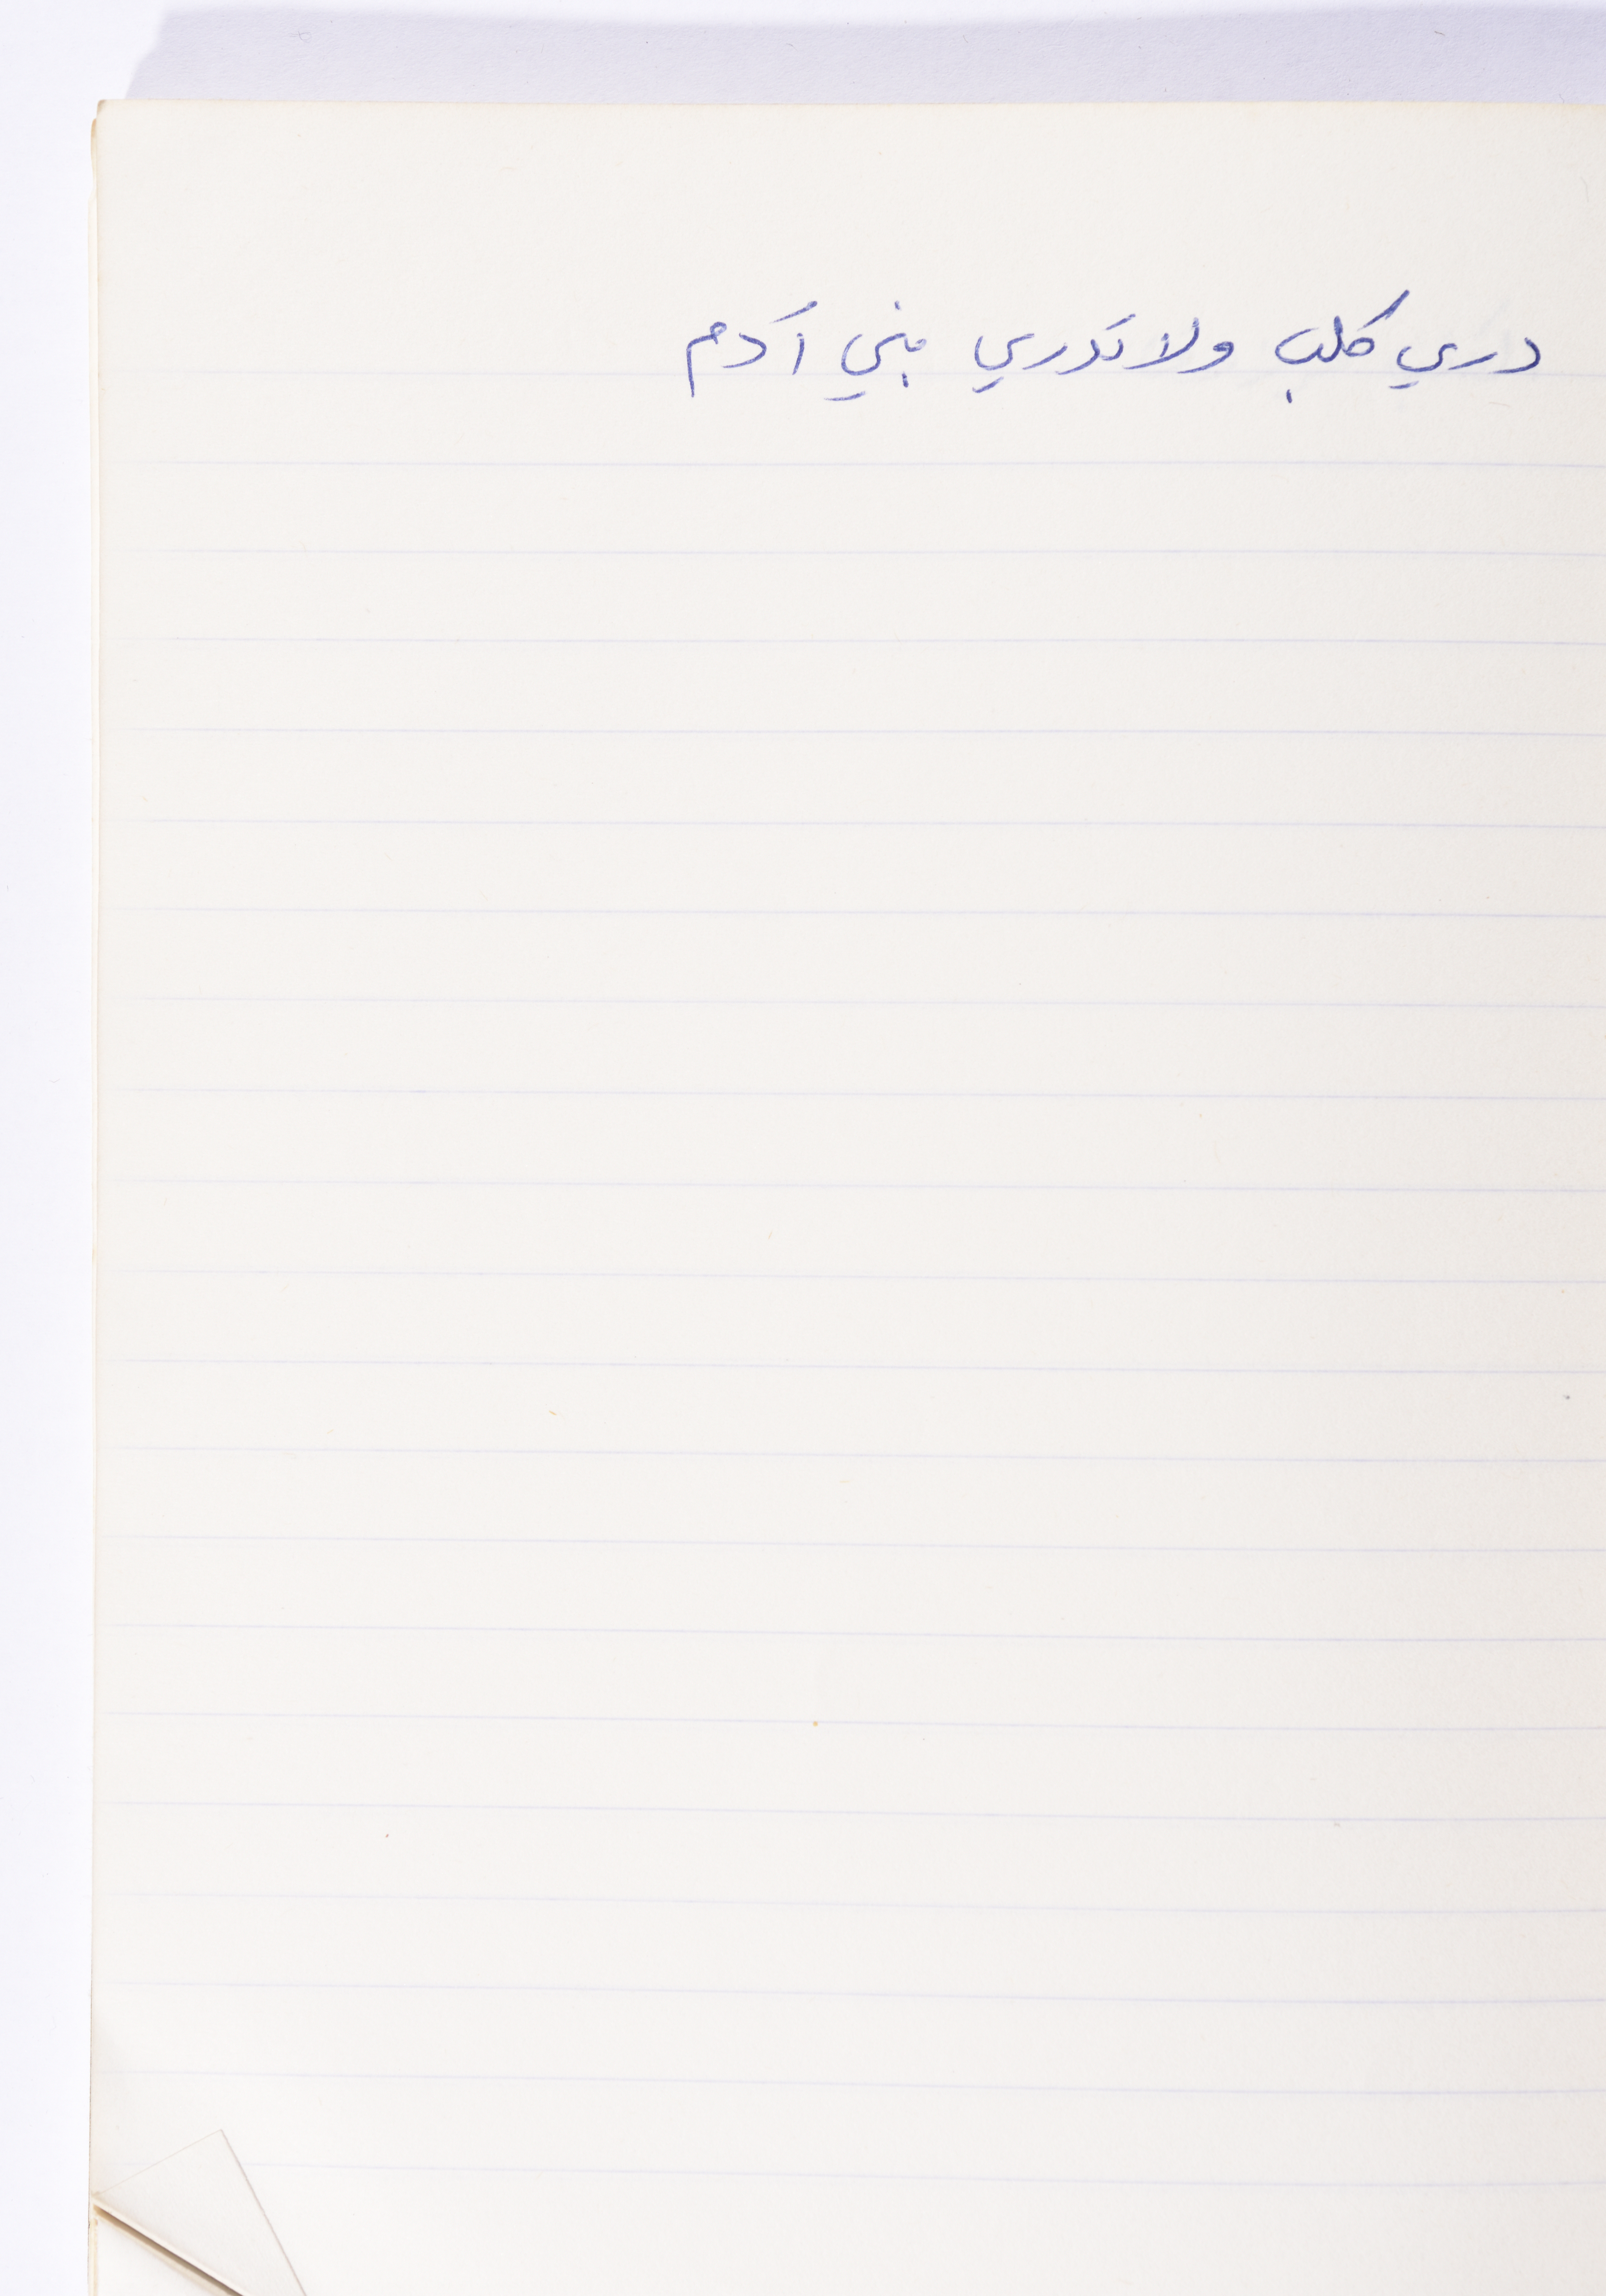 دري كلب ولا تدري بني آدم